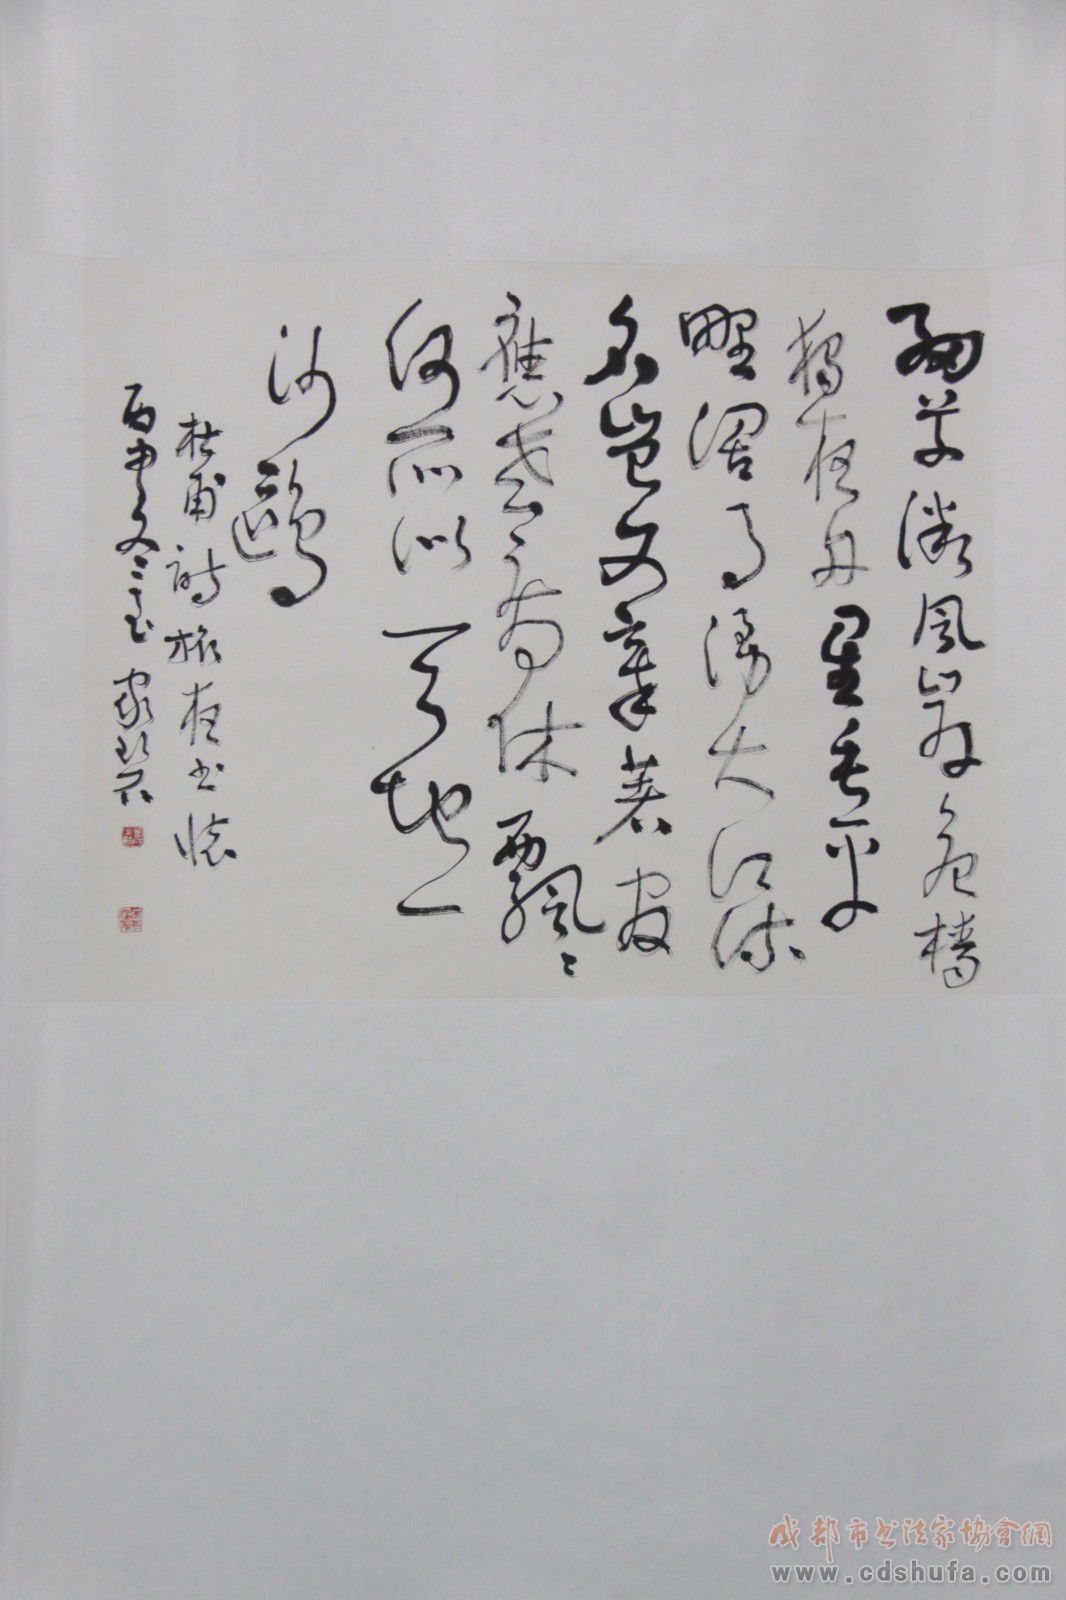 細草微風岸危檣
獨夜舟星垂平
野闊月湧大江流
名豈文章著官
應老病休飄〻
何所似天地一
沙鷗
杜甫詩旅夜书懷
丙申冬至家
成都市书法家協會網
www.cdshufa.com